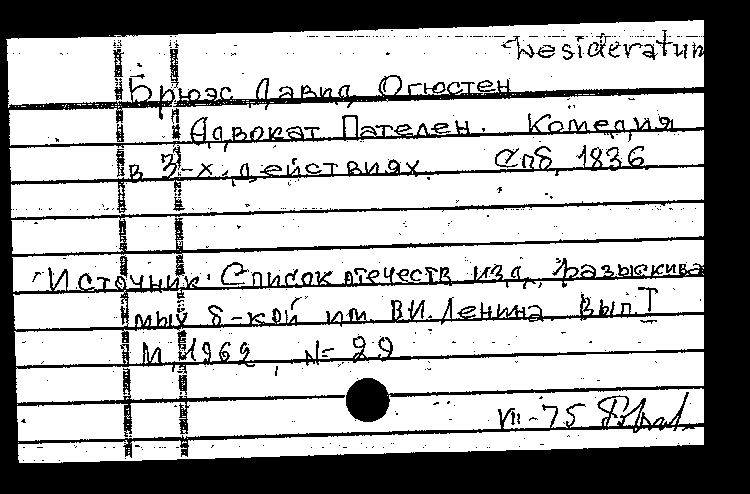 Desideratum
Брюэс Давид Огюстен
Адвокат Пателен. Комедия
в 3-х действиях. Спб, 1836
Источник: Список отечеств. изд., разыскива
мых б-кой им. В.И. Ленина. Вып. I
М, 1962, № 29
VII-75